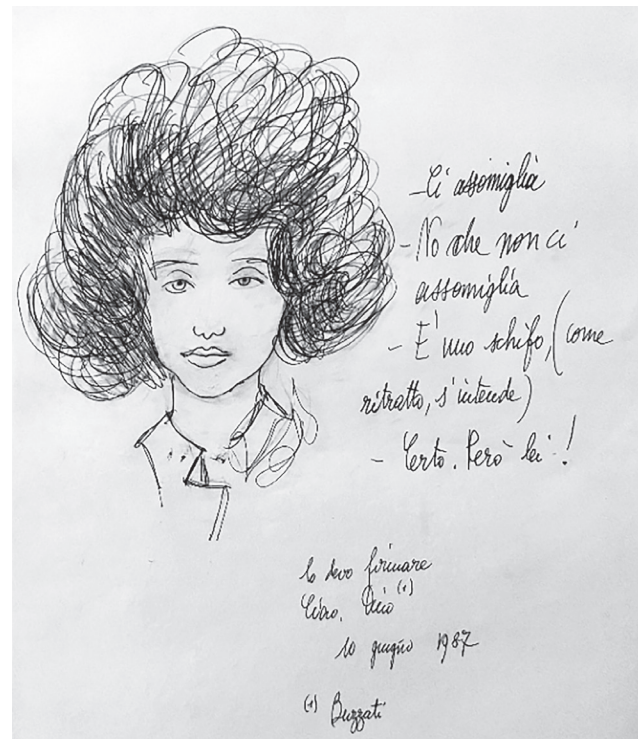 - Ci assomiglia
- No che non ci
assomiglia
- E' uno schifo, (come
ritratto, s'intende)
- Certo. Però lei!
lo devo firmare
Ciao. Dino (1)
10 giugno 1987
(1) Buzzati